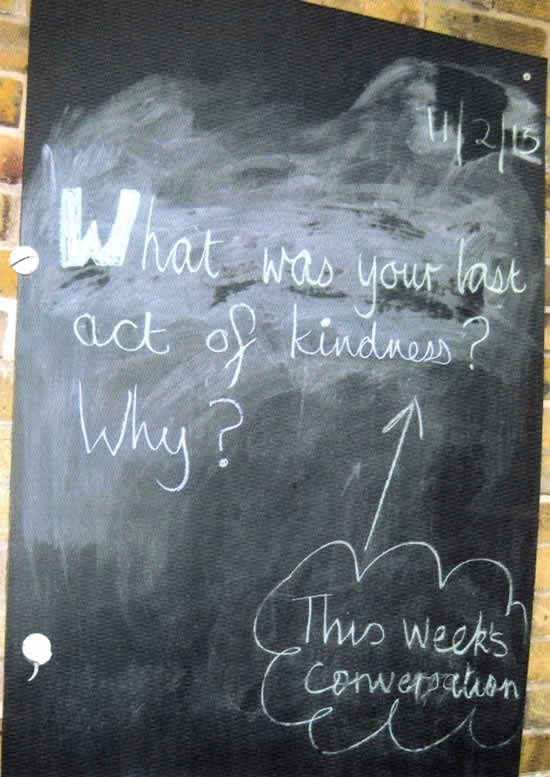 11/2/15
What was your last
act of kindness?
Why?
This week's
Conversation